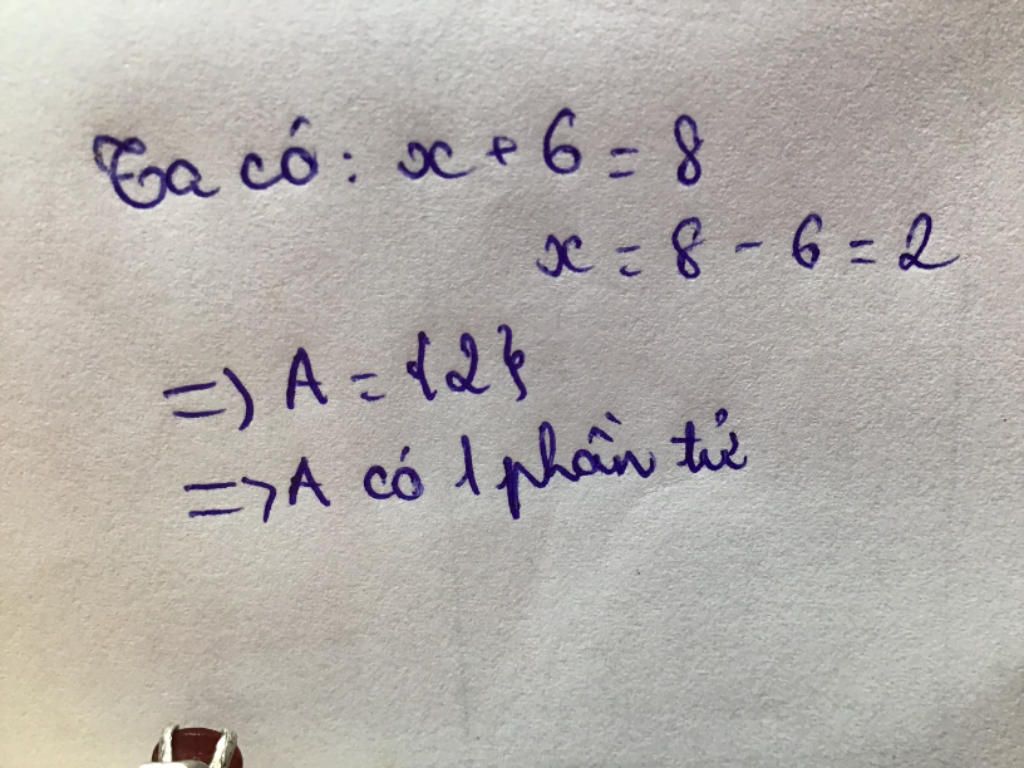 Ta có: x + 6 = 8
x = 8 - 6 = 2
=> A = {2}
=> A có 1 phần tử